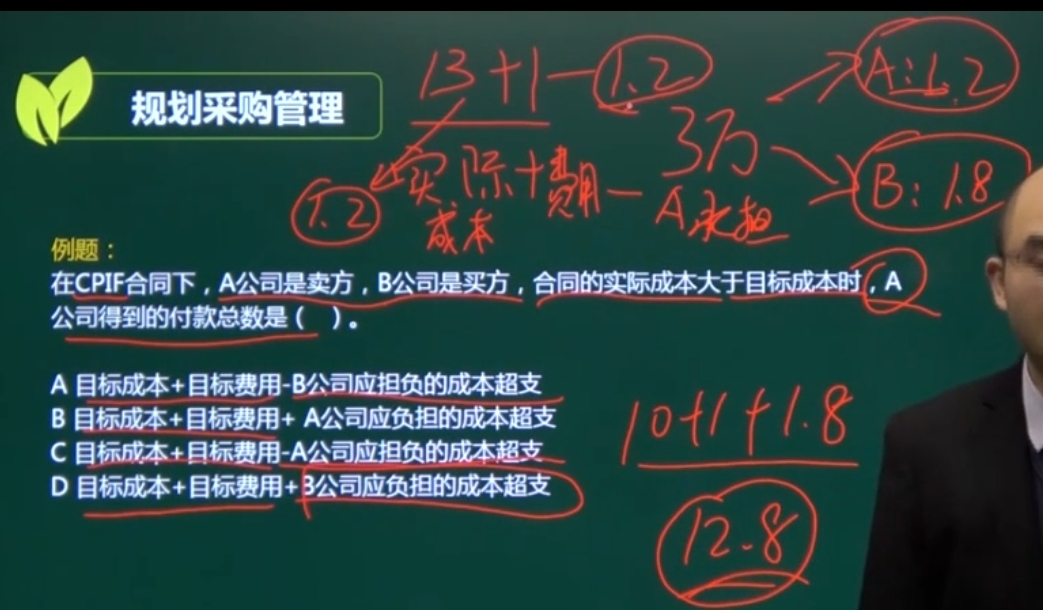 规划采购管理
13+1-1.2
A:1.2
3万
B:1.8
1.2
实际+费用-A承担
成本
例题：
在CPIF合同下，A公司是卖方，B公司是买方，合同的实际成本大于目标成本时，A
公司得到的付款总数是（ ）。
A 目标成本+目标费用-B公司应担负的成本超支
B 目标成本+目标费用+ A公司应负担的成本超支
C 目标成本+目标费用-A公司应担负的成本超支
D 目标成本+目标费用+B公司应负担的成本超支
10+1+1.8
12.8